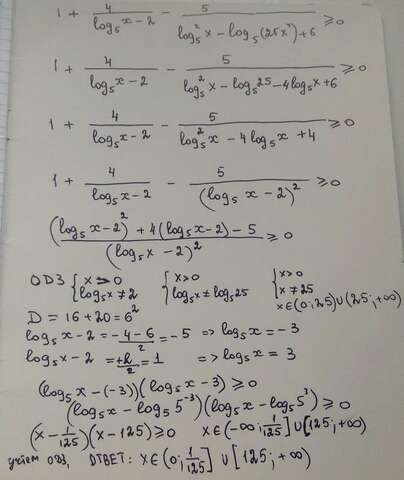 1 + 4/(log₅x-2) - 5/(log₅²x - log₅(25x⁴)+6) ≥0
1 + 4/(log₅x-2) - 5/(log₅²x - log₅25 - 4log₅x+6) ≥0
1 + 4/(log₅x-2) - 5/(log₅²x - 4log₅x + 4) ≥0
1 + 4/(log₅x-2) - 5/(log₅x-2)² ≥0
((log₅x-2)² + 4(log₅x-2) - 5)/(log₅x-2)² ≥0
ОДЗ {x>0 {x>0 {x>0
log₅x≠2 log₅x≠log₅25 x≠25
D = 16+20=6² x∈(0;25)∪(25;+∞)
log₅x-2 = (-4-6)/2 = -5 => log₅x = -3
log₅x-2 = +2/2 = 1 => log₅x = 3
(log₅x-(-3))(log₅x-3) ≥0
(log₅x - log₅5⁻³)(log₅x - log₅5³) ≥0
(x - 1/125)(x-125)≥0 x∈(-∞; 1/125] ∪ [125; +∞)
учтём одз, ОТВЕТ: x∈(0; 1/125] ∪ [125; +∞)